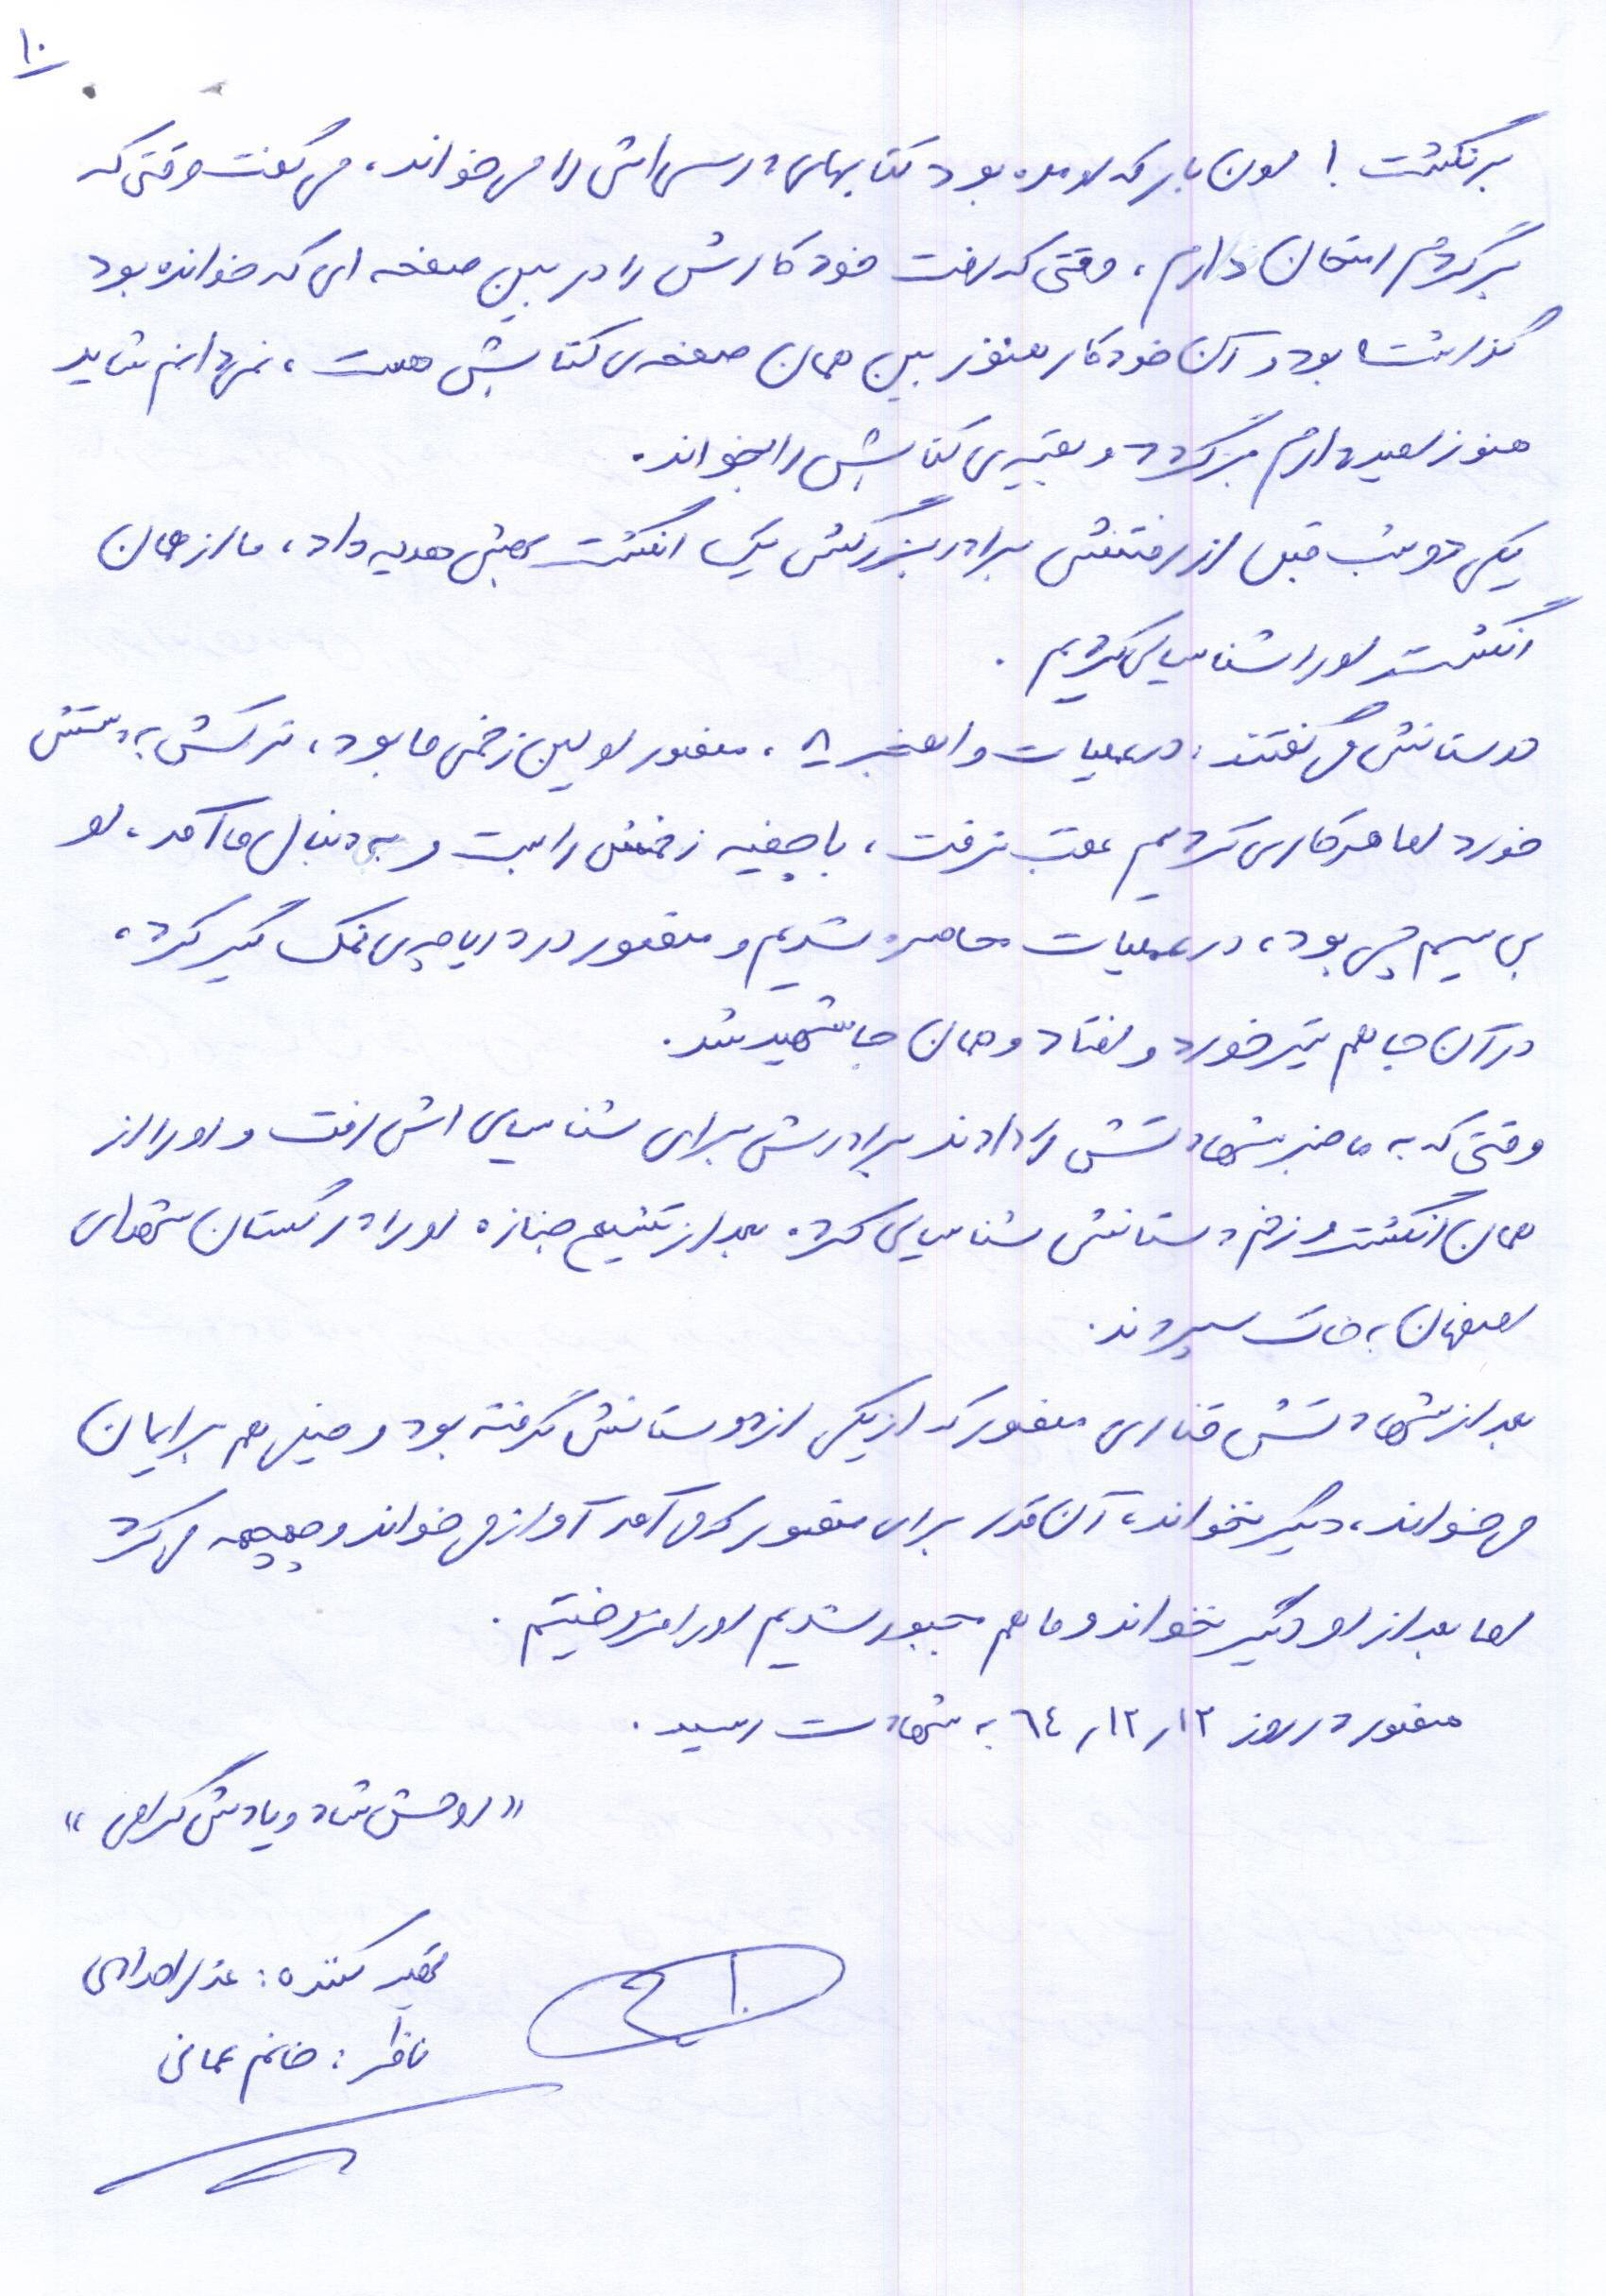 ۱۰
برنگشت! اون بار که اومده بود کتابهای درسی اش را می خواند، می گفت وقتی که
برگردم امتحان دارم، وقتی که رفت خودکارش را در بین صفحه ای که خوانده بود
گذاشته بود و آن خودکار هنوز بین همان صفحه ی کتابش هست، نمی دانم شاید
هنوز امید دارم برگردد و بقیه ی کتابش را بخواند.
یکی دو شب قبل از رفتنش برادر بزرگش یک انگشت بهش هدیه داد، ما از همان
انگشت او را شناسایی کردیم.
دوستانش می گفتند: در عملیات والفجر ۸، منصور اولین زخمی ما بود، ترکش به دستش
خورد اما هر کاری کردیم عقب نرفت، با چفیه زخمش را بست و به دنبال ما آمد، او
بی سیم چی بود، در عملیات محاصره شدیم و منصور در دریاچه ی نمک گیر کرد،
در آن جا هم تیر خورد و افتاد و همان جا شهید شد.
وقتی که به ما خبر شهادتش را دادند برادرش برای شناسایی اش رفت و او را از
همان انگشت و زخم دستانش شناسایی کرد. بعد از تشییع جنازه او را در گلستان شهدای
اصفهان به خاک سپردند.
بعد از شهادتش قناری منصور که از یکی از دوستانش گرفته بود و خیلی هم برایمان
می خواند، دیگر نخواند، آن قدر برای منصور که می آمد آواز می خواند و چهچهه می کرد
اما بعد از او دیگر نخواند و ما هم مجبور شدیم او را فروختیم.
منصور در روز ۱۲ر۱۲ر۶۴ به شهادت رسید.
«روحش شاد و یادش گرامی»
تهیه کننده: عذرا امدادی
ناظر: خانم عمانی